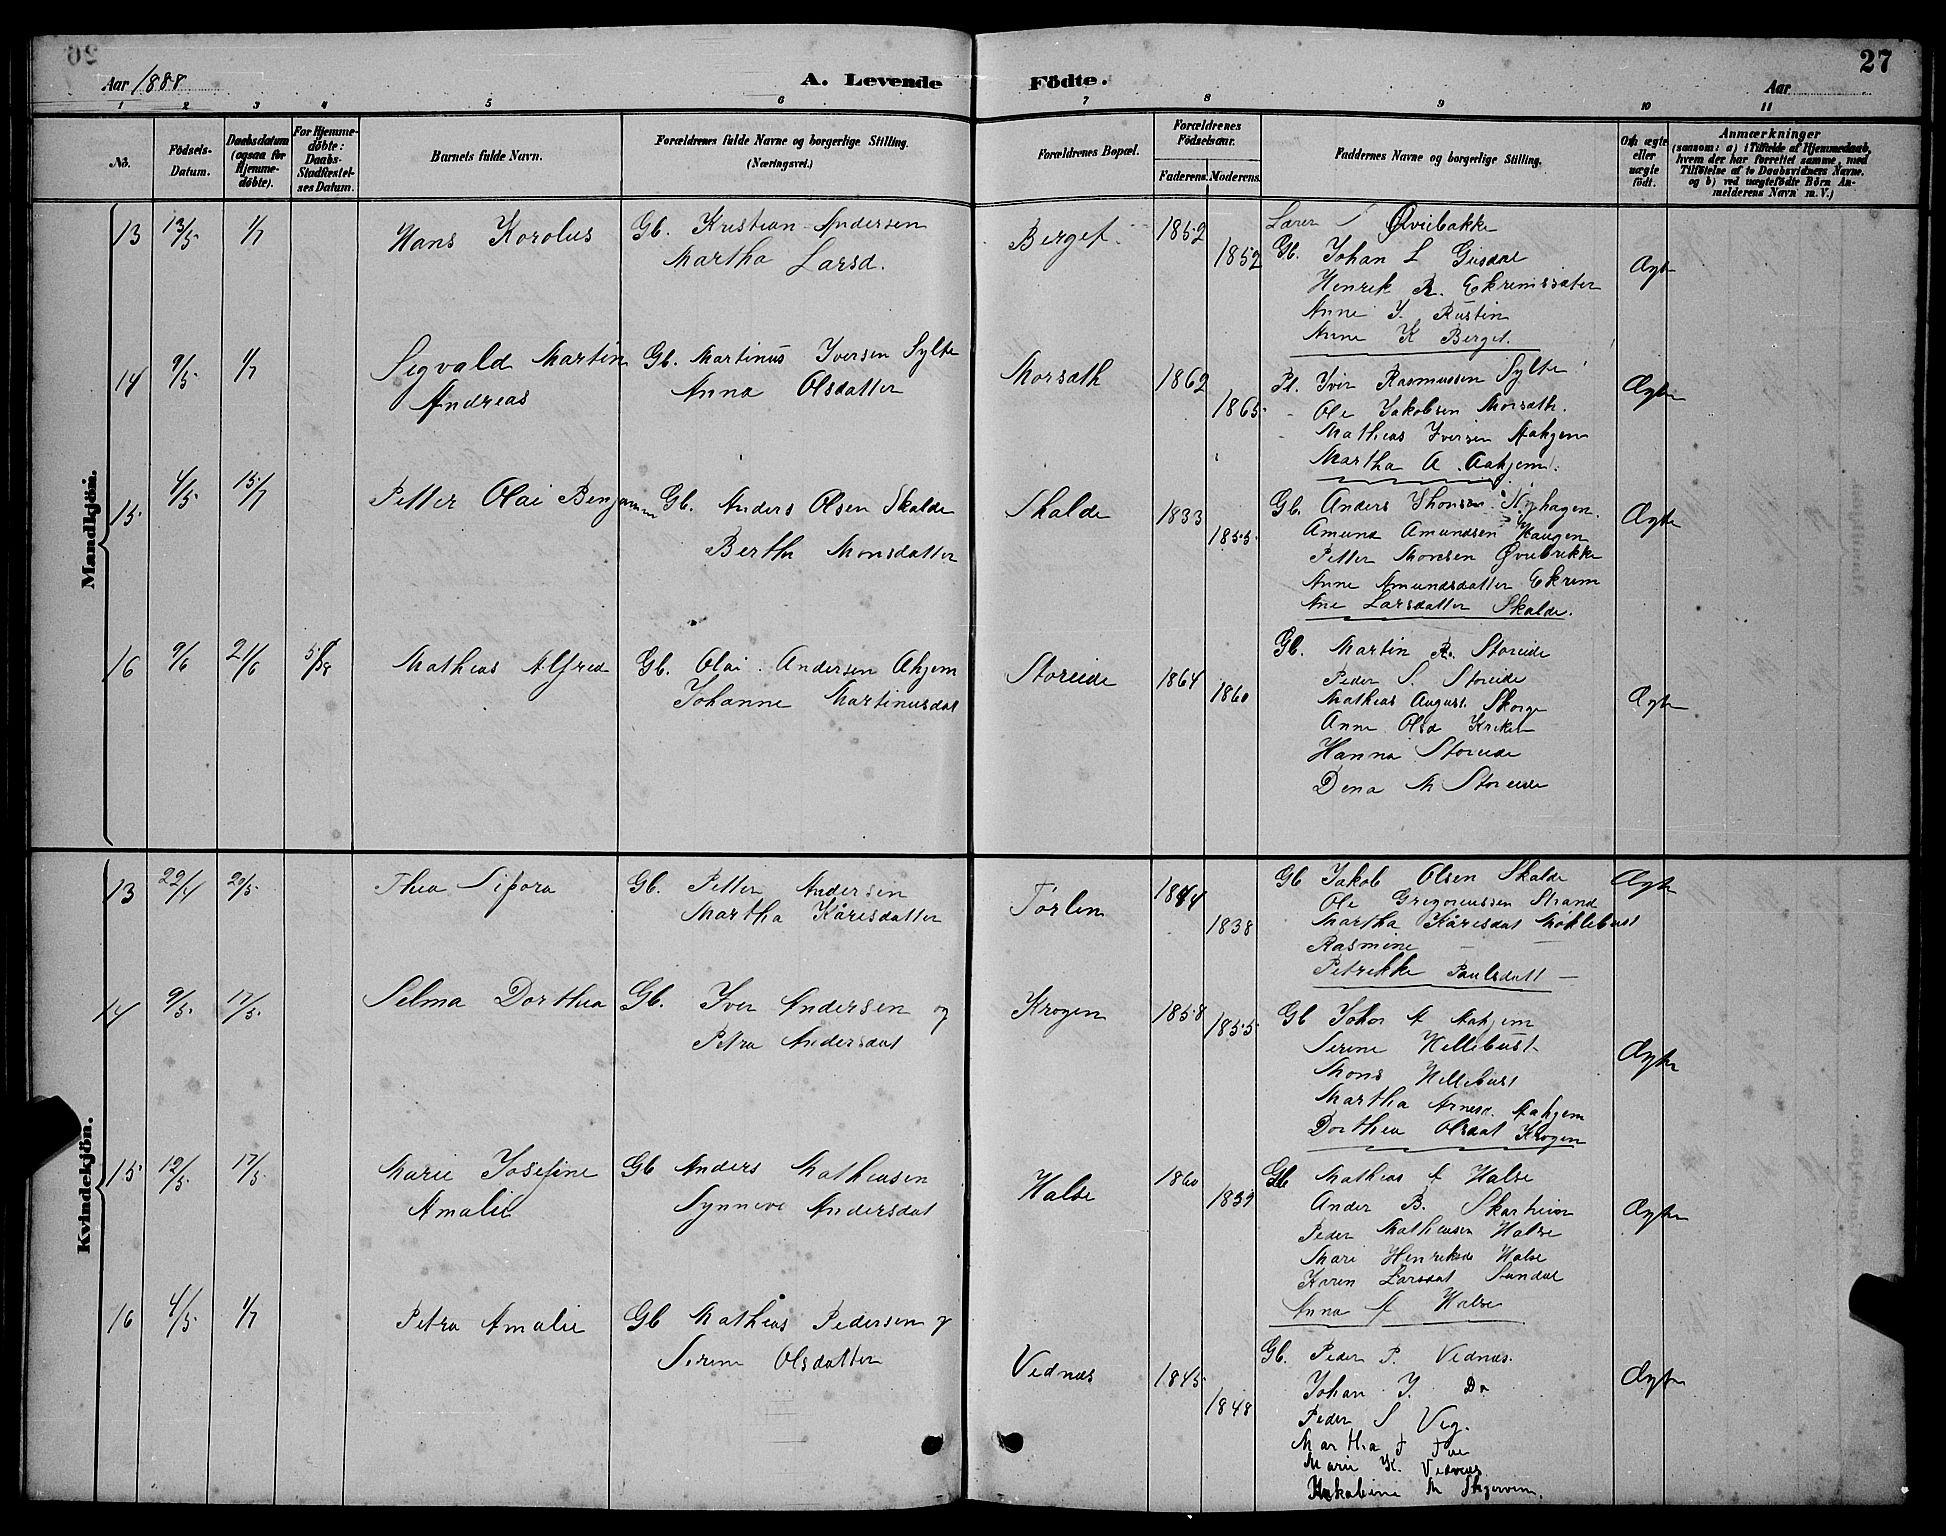 27
Aar 1888
A. Levende Födte.
Aar
1 2 3 4 5 6 7 8 9 10 11
No.
Födsels-Datum.
Daabsdatum (ogsaa for Hjemme-døbte).
For Hjemme-døbte: Daabs-Stadfæstel-ses Datum.
Barnets fulde Navn.
Forældrenes fulde Navne og borgerlige Stilling. (Næringsvei.)
Forældrenes Bopæl.
Forældrenes Fødselsaar.
Faderens. Moderens.
Faddernes Navne og borgerlige Stilling.
Om ægte eller uægte født.
Anmærkninger
(saasom: a) i Tilfælde af Hjemmedaab, hvem der har forrettet samme, med Tilføielse af to Daabsvidners Navne. og b) ved uægtefødte Börn An-melderens Navn m. V.)
Mandkjön.
13 13/5 1/7 Hans Korolus Gb. Kristian Andersen Berget 1852
Martha Larsd. 1852
Lærer Øvrebakke
Gb. Johan L Giisdal Ægte
Henrik R. Ekremssæter
Anne Rustin
Anne K Berget.
14 9/5 1/7 Segvald Martin Gb. Martinus Iversen Sylte Morsath 1862
Andreas Anna Olsdatter 1865
Pl. Iver Rasmussen Sylte Ægte
Ole Jakobsen Morsath.
Mathias Iversen Aahjem
Martha A. Aahjem.
15 4/5 15/7 Petter Olai Benjamin Gb. Anders Olsen Skalde Skalde 1833
Berthe Monsdatter 1855
Gb. Anders Nyhagen. Ægte
Amund Amundsen Haugen
Petter Monsen Øvrebekke
Anne Amundsdatter Ekrem
Ane Larsdatter Skalde.
16 9/6 21/6 Mathias Alfred Gb. Olai Andersen Ahjem Storeide 1864
Johanne Martinusdat 1860
Gb. Martin R. Storeide
Peder S. Storeide
Mathias August Skorge Ægte
Anne Olsd Kriken
Hanna Storeide
Dena M Storeide
Kvindekjön.
13 22/4 20/5 Thea Sipora Gb. Petter Andersen Torlen 1844
Martha Kåresdatter 1838
Gb Jakob Olsen Skalde Ægte
Ole Gregoriussen Strand
Martha Kåresdat Møklebust
Rasmine — —
Petrikke Paulsdatt —
14 9/5 17/5 Selma Dorthea Gb. Iver Andersen og Krogen 1858
Petra Andersdat 1855
Gb Johan A Aahjem
Serine Hellebust
Mons Hellebust Ægte
Martha Arnesd. Aahjem
Dorthea Olsdat Krogen
15 12/5 17/5 Marie Josefine Gb Anders Mathiasen Halse 1860
Amalie Synneve Andersdat 1839
Gb Mathias A Halse
Ander B. Skarheim Ægte
Peder Mathiasen Halse
Mari Henriksd Halse
Karen Larsdat Sandal
Anna A Halse
16 4/5 1/7 Petra Amalie Gb Mathias Pedersen og Vednæs 1845
Serine Olsdatter 1848
Gb. Peder P. Vednæs. Ægte
Johan I. Do
Peder S Vig.
Martha J Tue
Marie K. Vednæs
Jakobine M Skjerven.